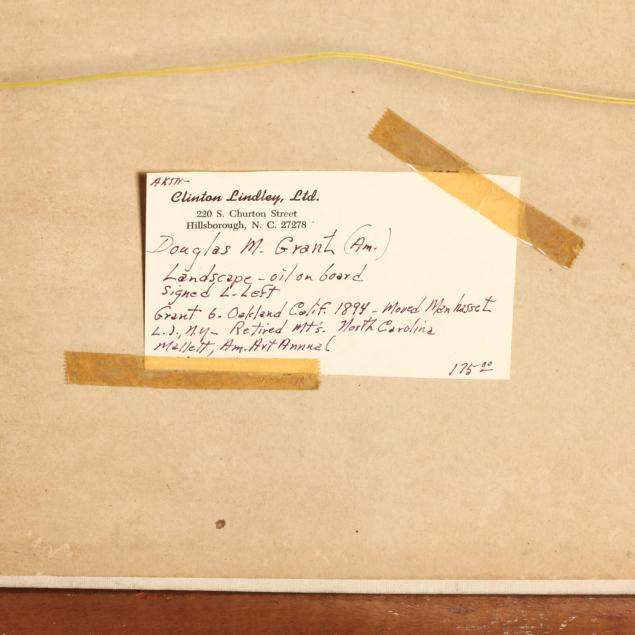 AKTH-
Clinton Lindley, Ltd.
220 S. Churton Street
Hillsborough, N. C. 27278
Douglas M. Grant (Am.)
Landscape - oil on board
Signed L. Left
Grant b. Oakland Calif. 1894 - Moved Manhasset
L.I., N.Y. - Retired Mt's. North Carolina
Mallett, Am. Art Annual
175.00